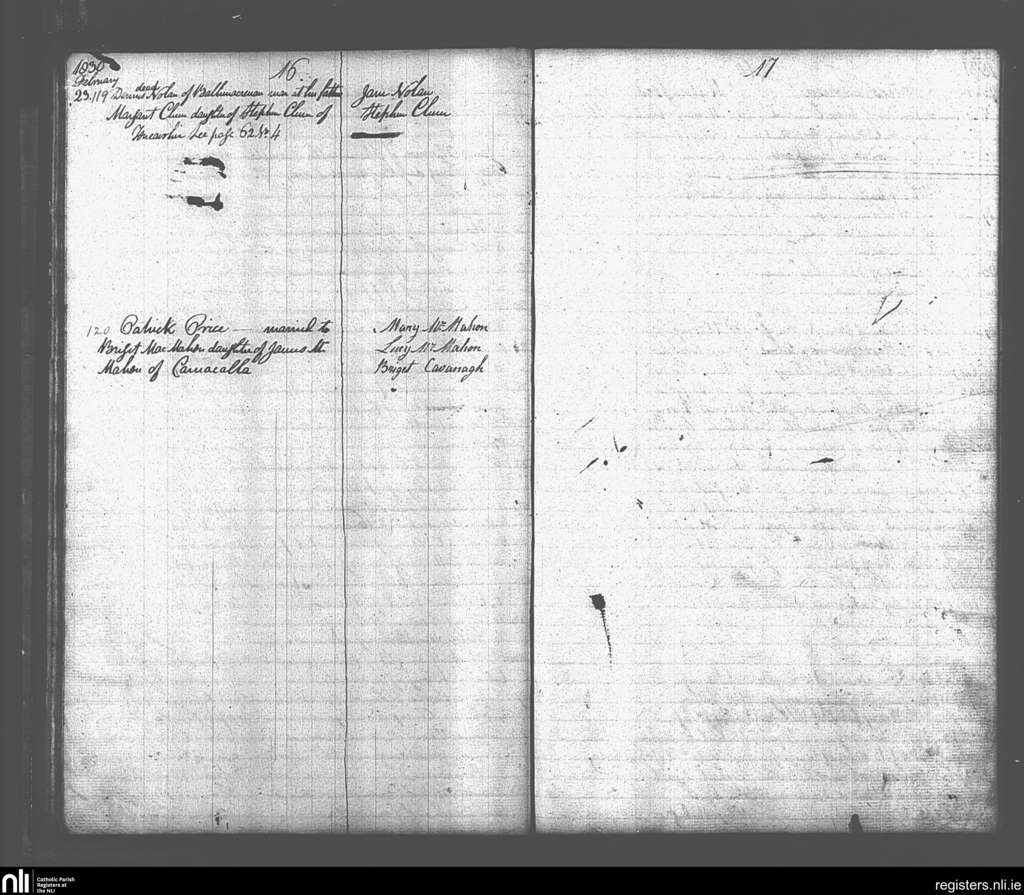 1830
16
17
February
dead
23. 119 Dennis Nolan of at his father
Jam Nolan
Margaret Clune daughter of Stephen Clune of
Stephen Clune
See page 62 No 4
120 Patrick Price — married to
Mary Mc Mahon
Briget Mac Mahon daughter of James Mc
Lucy Mc Mahon
Mahon of Carnacalla
Briget Cavanagh
nli
Catholic Parish
Registers at
the NLI
registers.nli.ie